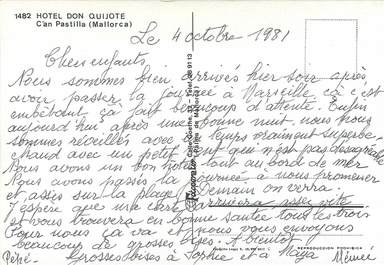 1482 HOTEL DON QUIJOTE
C'an Pastilla (Mallorca)
Le 4 octobre 1981
Chers enfants,
Nous sommes bien arrivés hier soir après
avoir passer la journée à Marseille où c'est
embêtant, ça fait beaucoup d'attente. Enfin
aujourd'hui après une bonne nuit, nous nous
sommes réveillés avec un temps vraiment superbe
chaud avec un petit vent qui n'est pas désagréable
Nous avons un bon hôtel tout au bord de mer
Nous avons passés la journée à nous promener
et assis sur la plage. Demain on verra.
J'espère que ma carte arrivera assez vite
et vous trouvera en bonne santée tous les trois
Pour nous ça va et nous vous envoyons
beaucoup de grosses bises. A bientôt
Grosses bises à Sophie et à Maya
Pépé
Mémée
REPRODUCCION PROHIBIDA